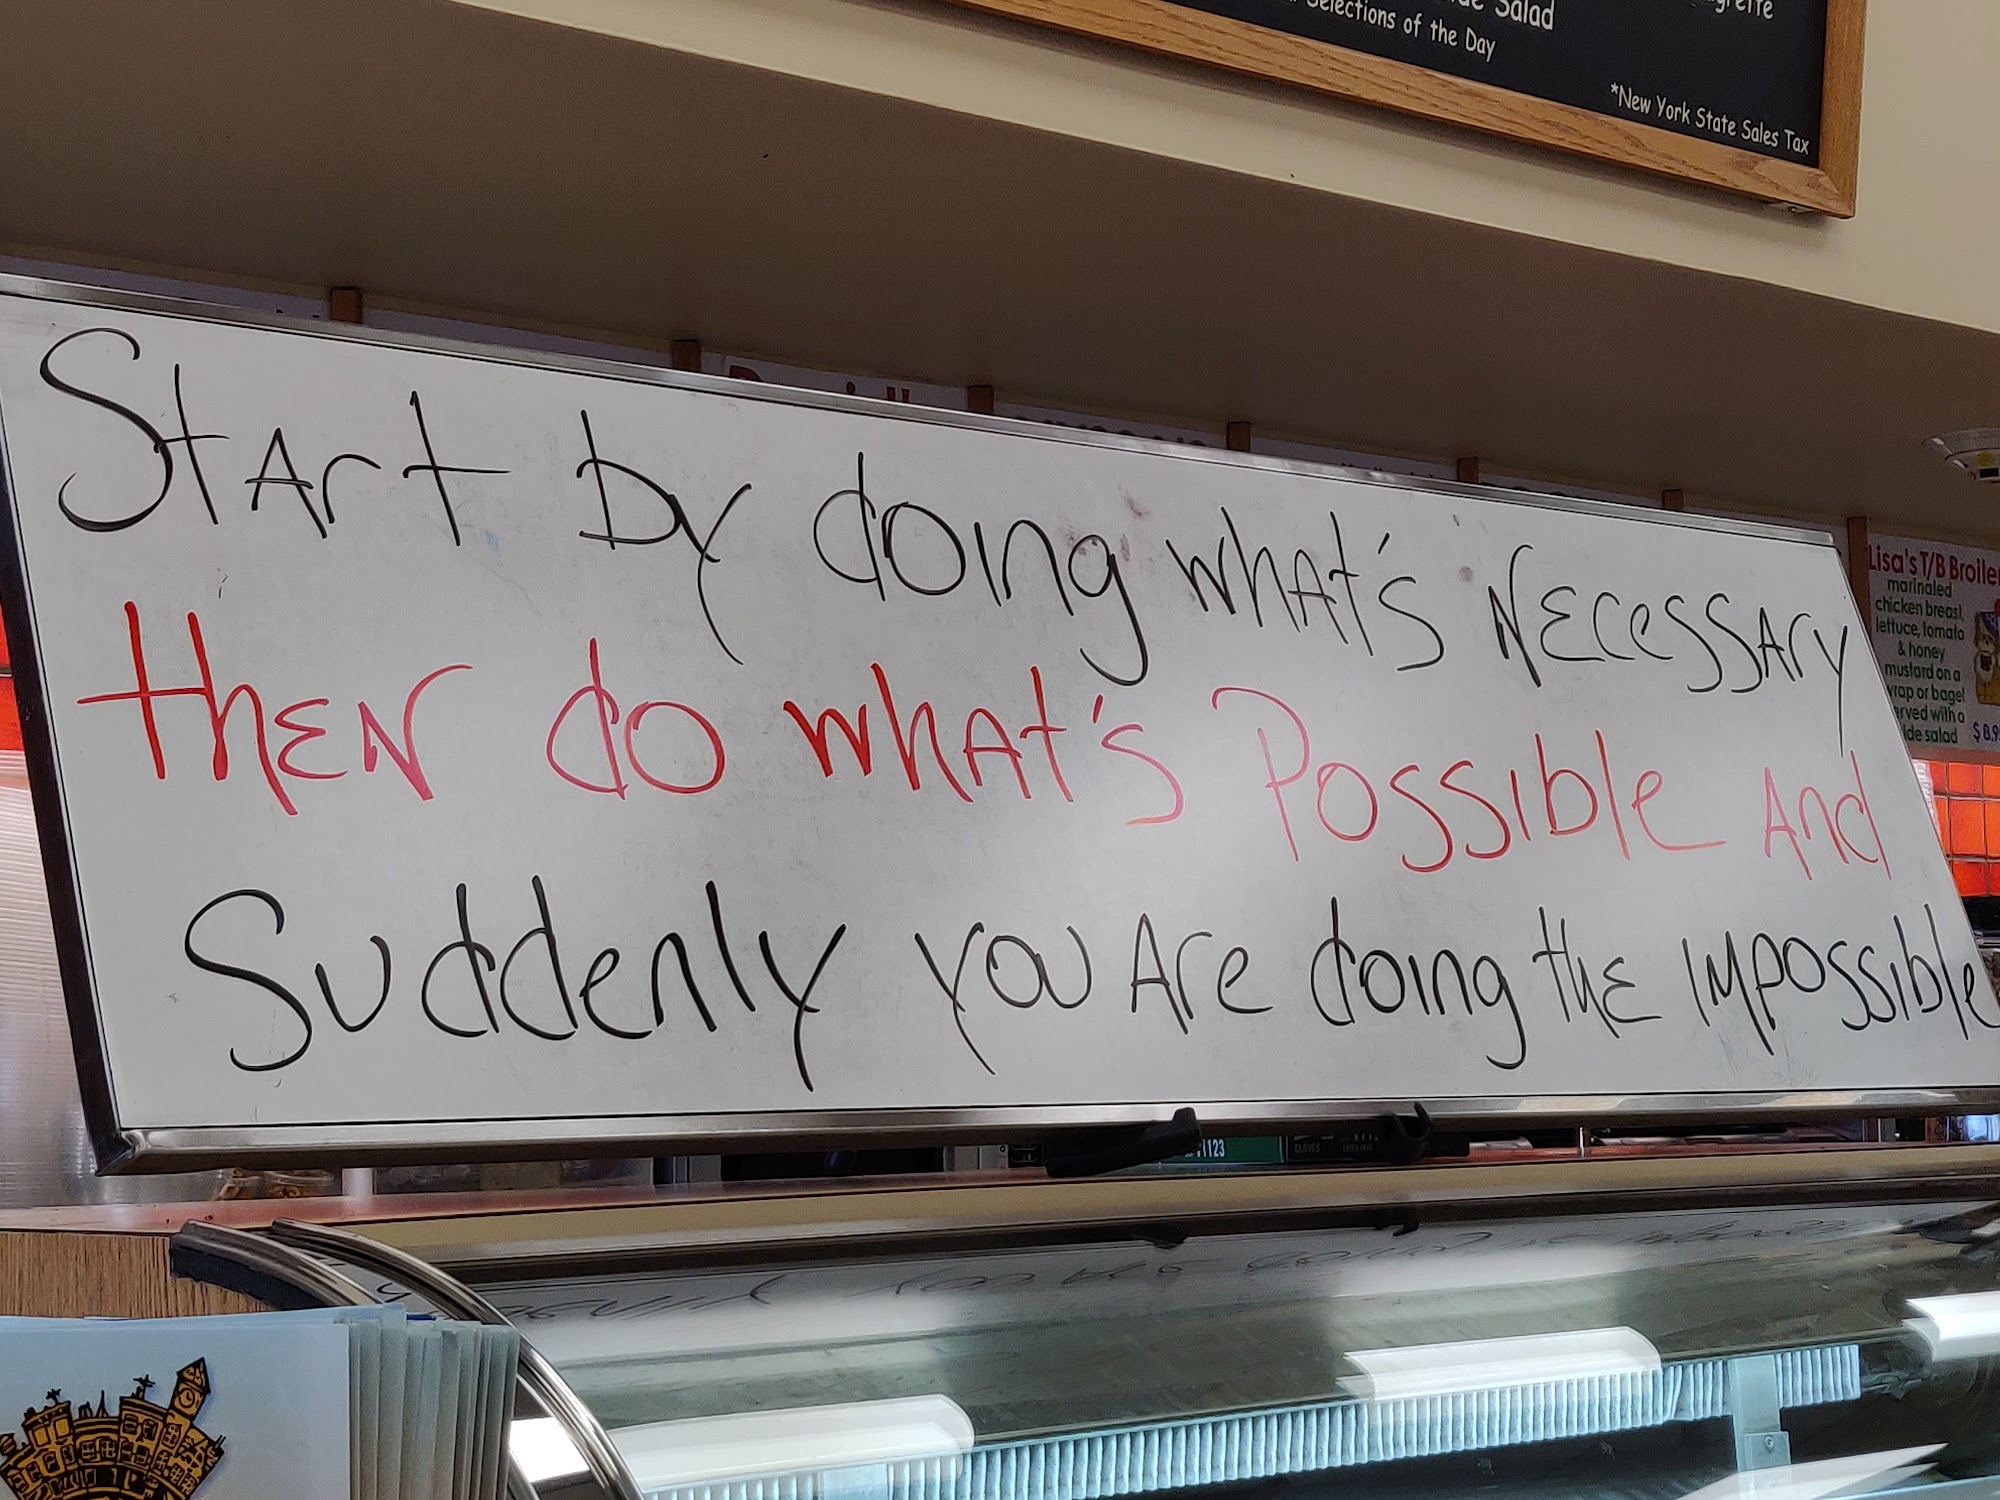 Salad
Selections of the Day
*New York State Sales Tax
Start by doing what's necessary
then do what's Possible And
Suddenly you Are doing the impossible
Lisa's T/B Broiler
marinated
chicken breast,
lettuce, tomato
& honey
mustard on a
wrap or bagel
served with a
side salad